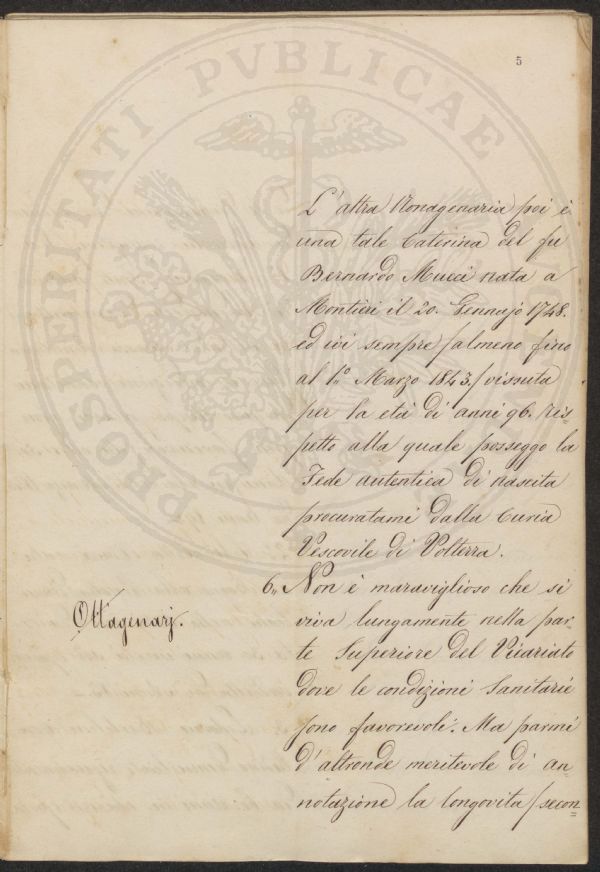 PROSPERITATI PVBLICAE
5
L'altra Nonagenaria poi è
una tale Caterina del fu
Bernardo Mucci nata a
Montieri il 20. Gennajo 1748.
ed ivi sempre /almeno fino
al 1.º Marzo 1843./ vissuta
per la età di anni 96. ris=
petto alla quale posseggo la
Fede autentica di nascita
procuratami dalla Curia
Vescovile di Volterra.
6,, Non è maraviglioso che si
Ottagenarj.
viva lungamente nella par=
te Superiore del Vicariato
dove le condizioni Sanitarie
sono favorevoli. Ma parmi
d'altronde meritevole di an=
notazione la longevità /secon=